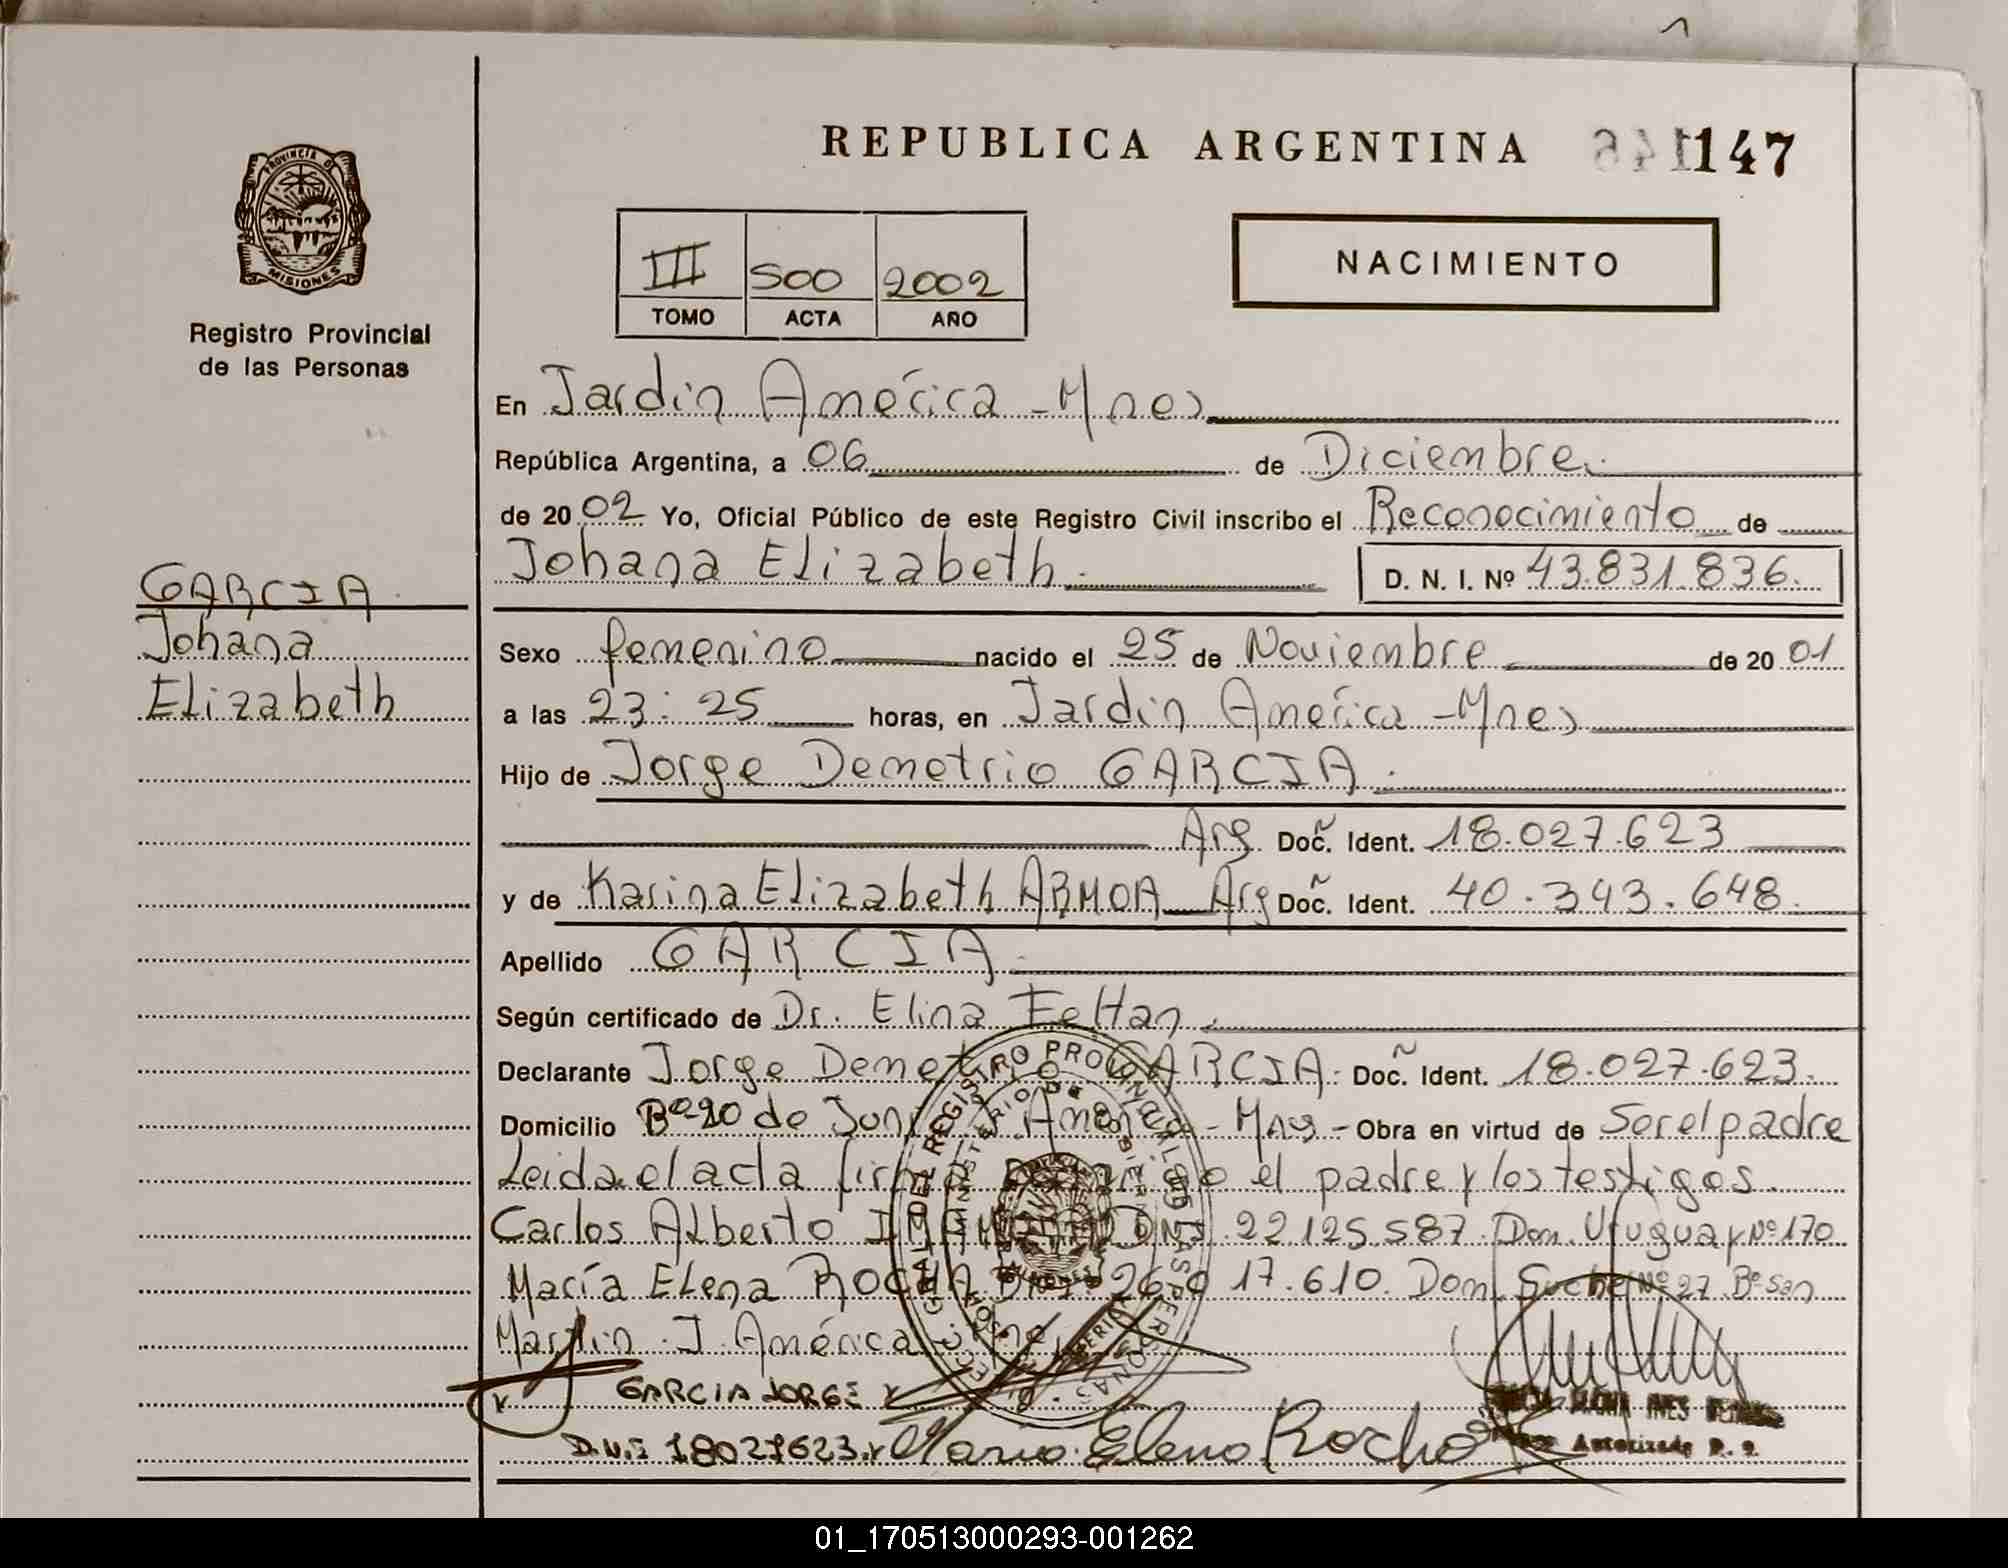 REPUBLICA ARGENTINA 147
PROVINCIA DE
MISIONES
Registro Provincial
de las Personas
III 500 2002
TOMO ACTA AÑO
NACIMIENTO
En Jardin América - Mnes
República Argentina, a 06 de Diciembre
de 2002 Yo, Oficial Público de este Registro Civil inscribo el Reconocimiento de
Johana Elizabeth D. N. I. Nº 43.831.836.
GARCIA
Johana
Elizabeth
Sexo femenino nacido el 25 de Noviembre de 2001
a las 23:25 horas, en Jardin América - Mnes
Hijo de Jorge Demetrio GARCIA.
Arg Doc. Ident. 18.027.623
y de Karina Elizabeth ARMOA Arg Doc. Ident. 40.343.648
Apellido GARCIA.
Según certificado de Dr. Elina
Declarante Jorge Demetrio GARCIA. Doc. Ident. 18.027.623.
Domicilio Bº 20 de Junio América - Mnes - Obra en virtud de Ser el padre
Leida el acta firma conmigo el padre y los testigos.
Carlos Alberto DNI 22.125.587. Dom. Uruguay Nº 170
María Elena ROCHA DNI 17.610. Dom. Nº 27 Bº San
Martin. J. América
GARCIA JORGE
D.N.I 18027623. Maria Elena Rocha
01_170513000293-001262